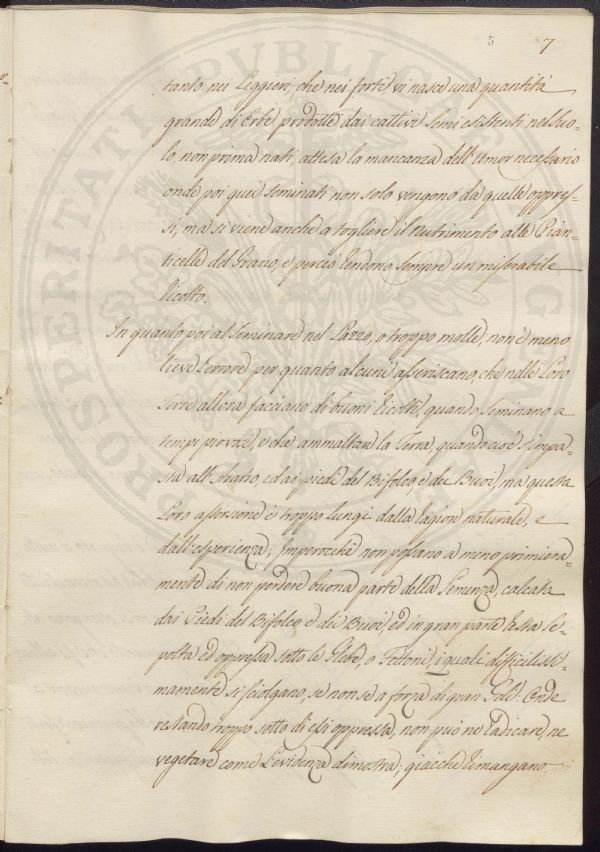 5 7
tanto nei Leggieri, che nei forti vi nasce una quantità
grande di Erbe prodotte dai cattivi Semi esistenti nel Suo-
lo, non prima nati, attesa la mancanza dell'Umor necessario
onde poi quei Seminati non solo vengono da quelle oppres-
si, ma si viene anche a togliere il Nutrimento alle Pian-
ticelle del Grano, e perciò rendono sempre un miserabile
ricolto.
In quanto poi al Seminare nel Lazzo, o troppo molle, non è meno
lieve l'errore, per quanto alcuni asseriscano, che nelle Loro
Terre allora facciano di buoni ricolti, quando Seminano a
tempi piovosi, e che ammaltan la Terra, quando cioè s'impa-
sta all'Aratro, ed ai piedi del Bifolco, e dei Buoi, ma questa
Loro asserzione è troppo lungi dalla ragion naturale, e
dall'esperienza; Imperocchè non possano a meno primiera-
mente di non perdere buona parte della Semenza, calcata
dai Piedi del Bifolco e dei Buoi, ed in gran parte resta Se-
polta ed oppressa sotto le Glebe, o Tottoni, i quali difficilissi-
mamente si sciolgano, se non se a forza di gran Geli. Onde
restando troppo sotto di essi oppressa, non può ne radicare, ne
vegetare come l'evidenza dimostra, giacche rimangano
PROSPERITATI PUBLICAE AUG